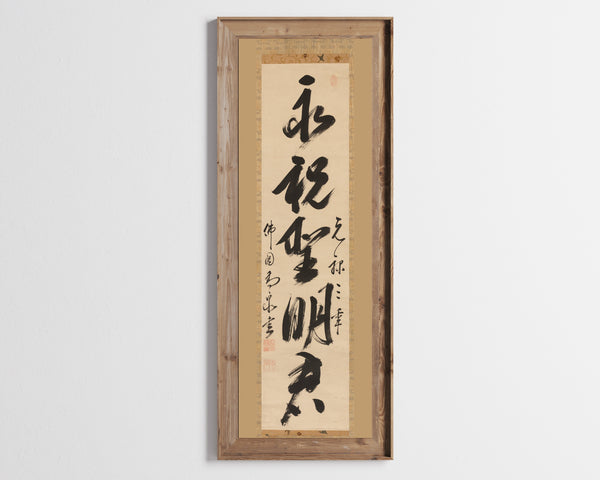 元禄三年
永祝聖明君
佛国高泉書